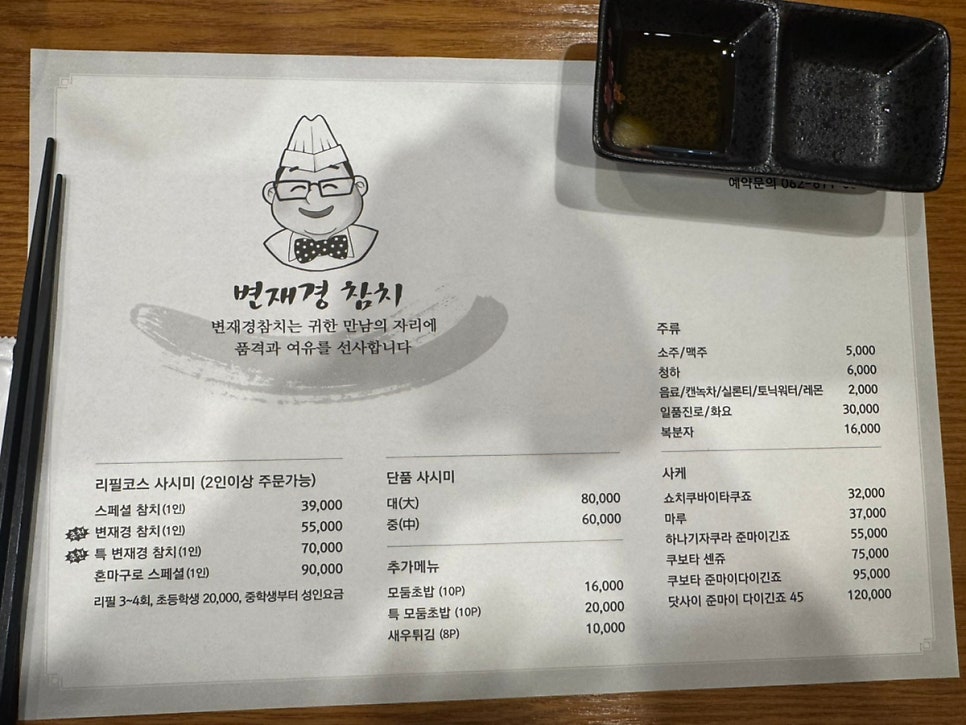 예약문의 062-671-
변재경 참치
변재경참치는 귀한 만남의 자리에
품격과 여유를 선사합니다
리필코스 사시미 (2인이상 주문가능)
스페셜 참치(1인) 39,000
변재경 참치(1인) 55,000
특 변재경 참치(1인) 70,000
혼마구로 스페셜(1인) 90,000
리필 3~4회, 초등학생 20,000, 중학생부터 성인요금
단품 사시미
대(大) 80,000
중(中) 60,000
추가메뉴
모둠초밥 (10P) 16,000
특 모둠초밥 (10P) 20,000
새우튀김 (8P) 10,000
주류
소주/맥주 5,000
청하 6,000
음료/캔녹차/실론티/토닉워터/레몬 2,000
일품진로/화요 30,000
복분자 16,000
사케
쇼치쿠바이타쿠죠 32,000
마루 37,000
하나기자쿠라 준마이긴죠 55,000
쿠보타 센쥬 75,000
쿠보타 준마이다이긴죠 95,000
닷사이 준마이 다이긴죠 45 120,000